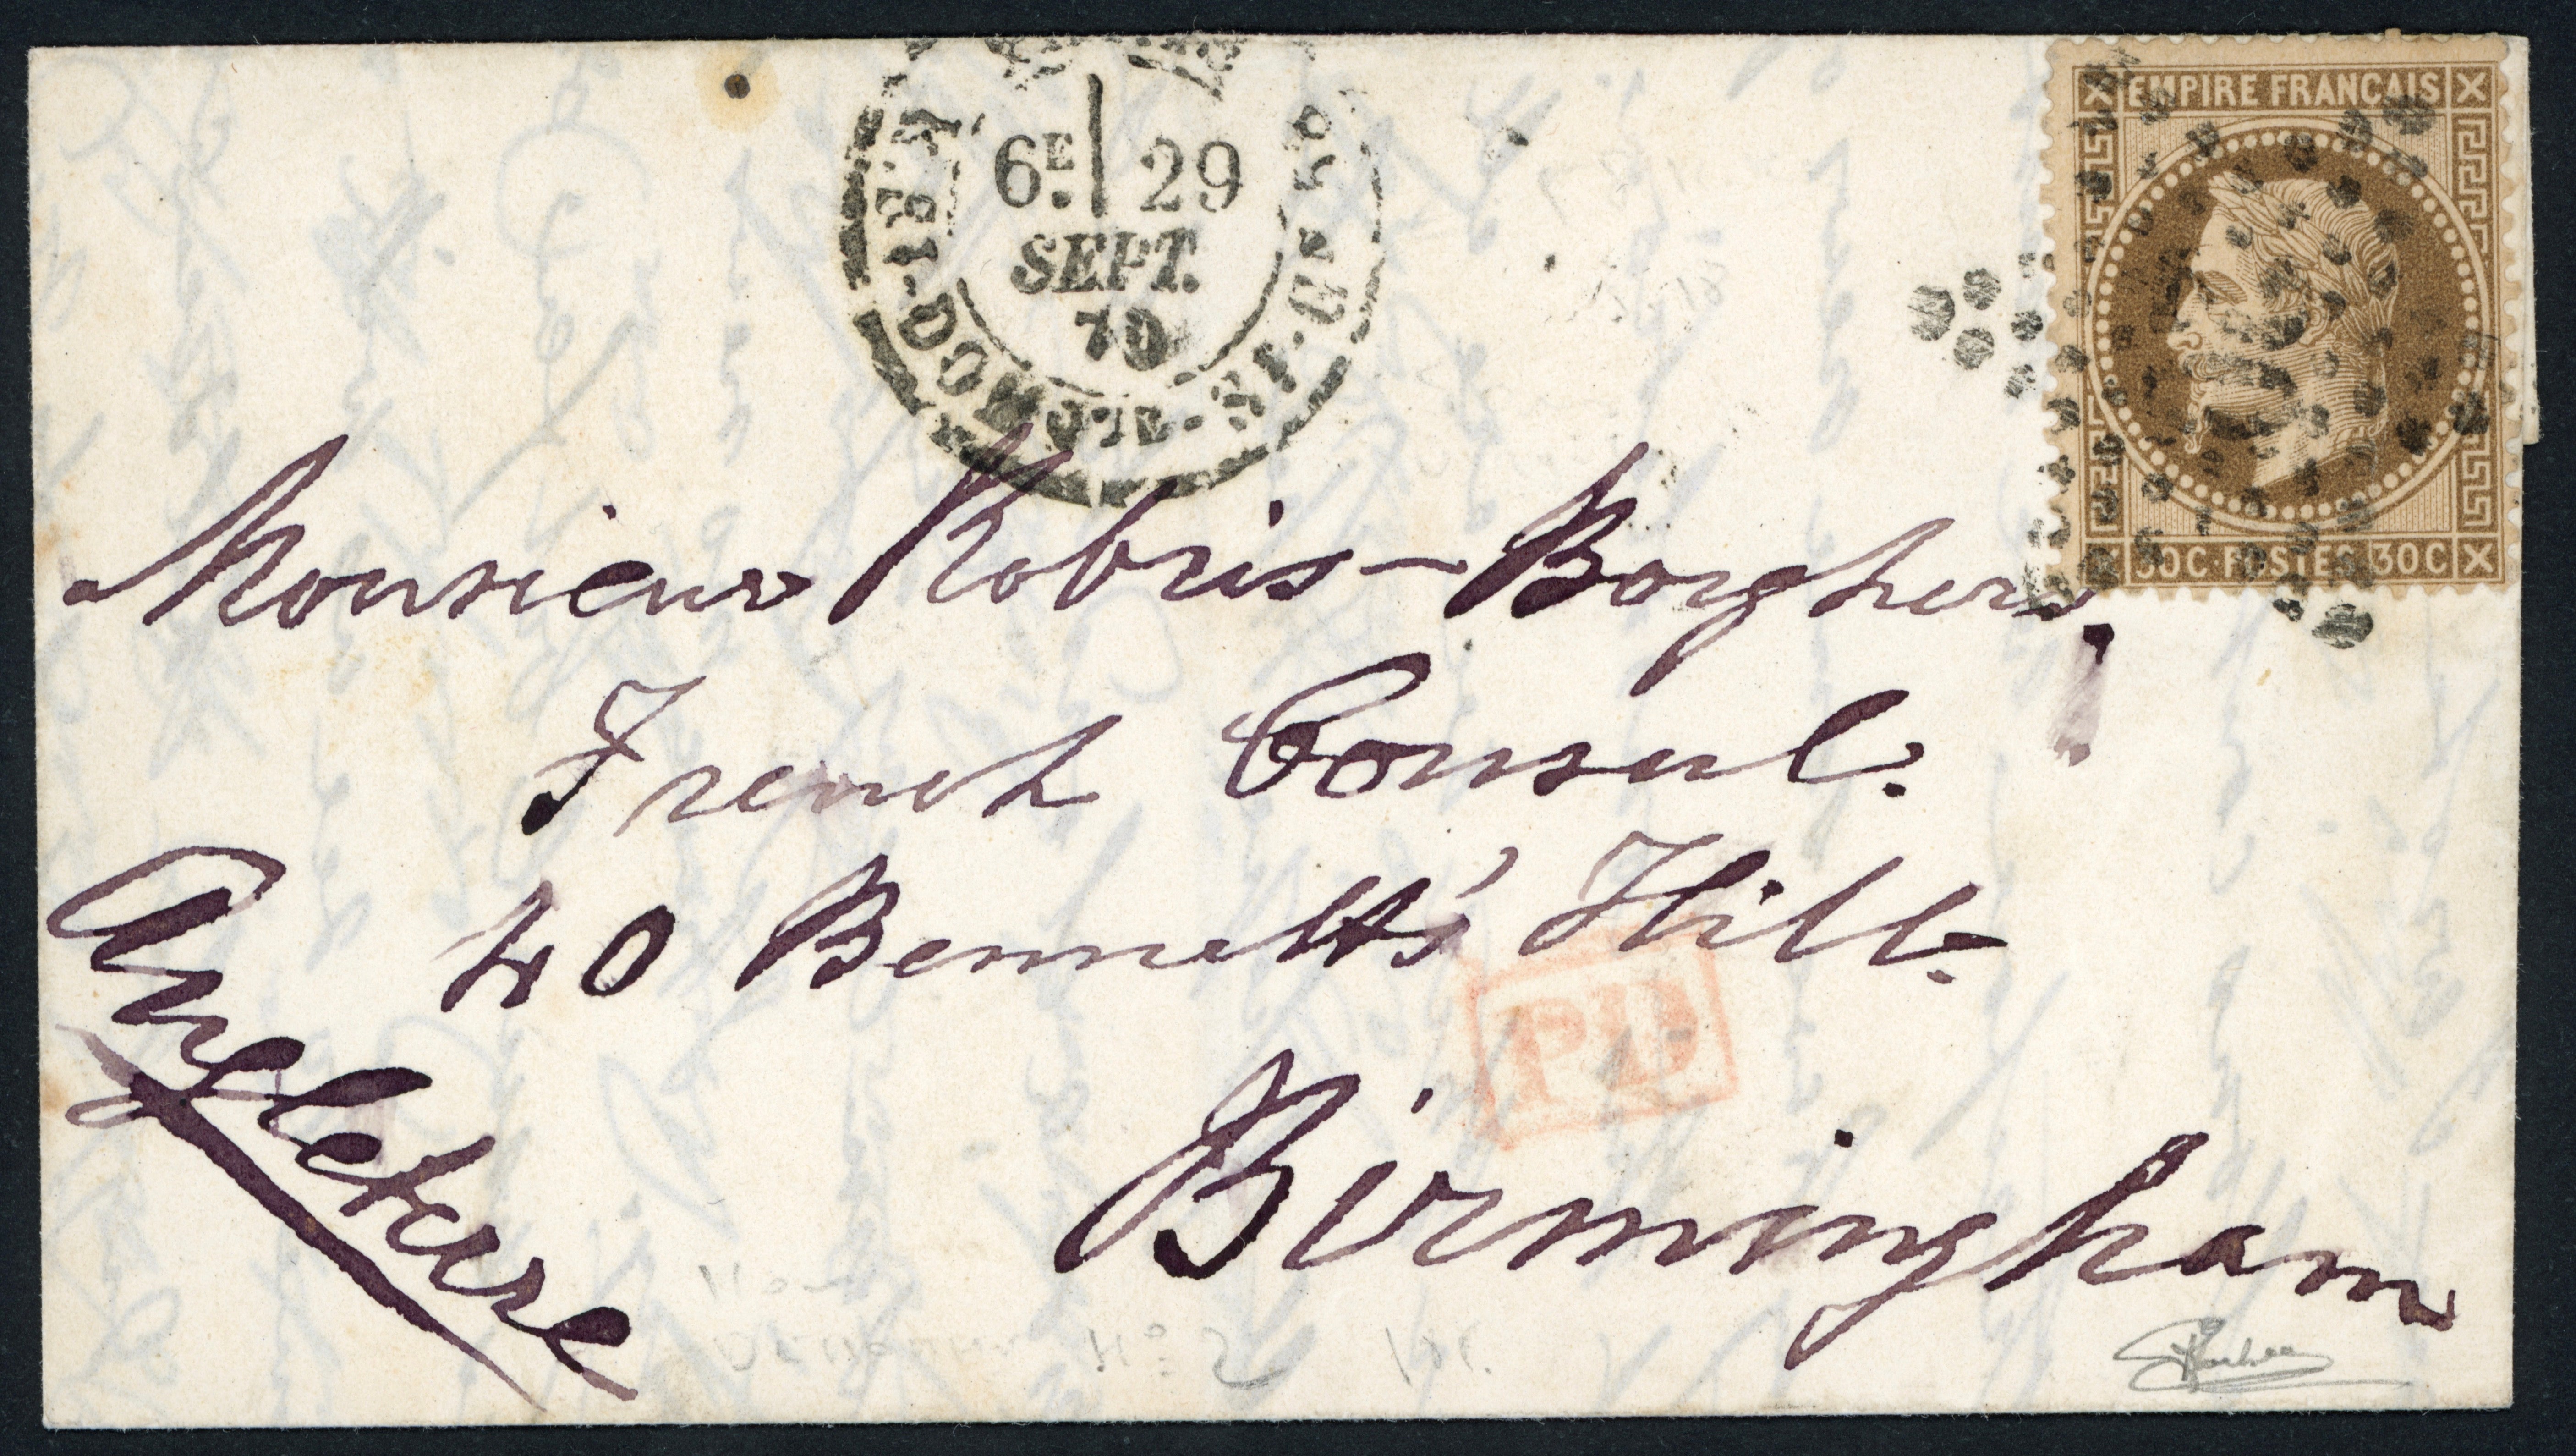 6E 29
SEPT.
70
EMPIRE FRANÇAIS
30C POSTES 30C
Monsieur Robris-Borghers.
French Consul.
40 Bennetts' Hill.
PD
Birmingham
Angleterre